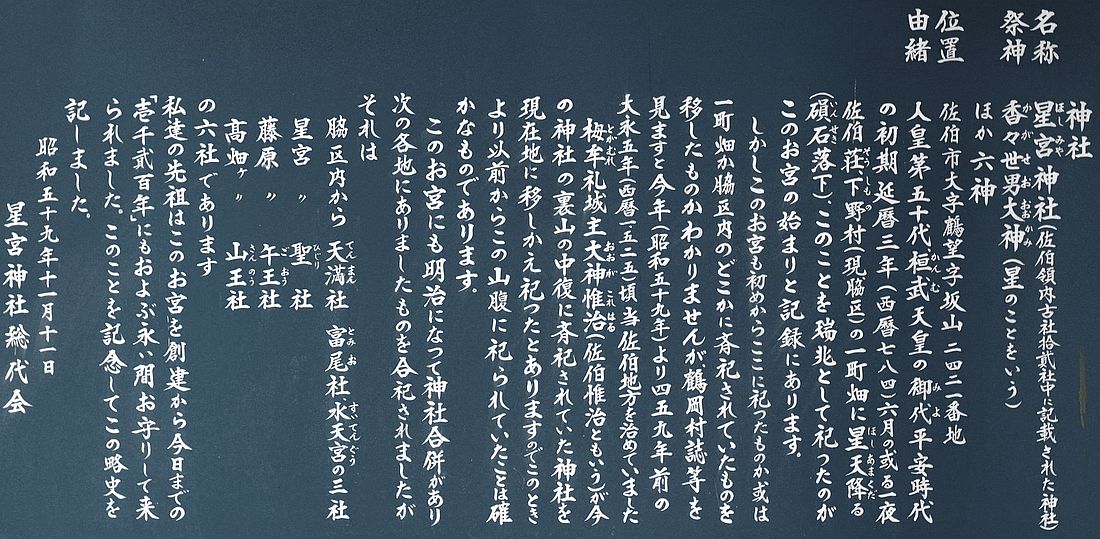 神社
名称 星宮神社(佐伯領内古社拾貳社中に記載された神社)
祭神 香々世男大神(星のことをいう)
ほか六神
位置 佐伯市大字鶴望字坂山二四二一番地
由緒 人皇第五十代桓武天皇の御代平安時代
の初期延暦三年(西暦七八四)六月の或る一夜
佐伯荘下野村(現脇区)の一町畑に星天降る
(磒石落下)、このことを瑞兆として祀ったのが
このお宮の始まりと記録にあります。
しかしこのお宮も初めからここに祀ったものか或は
一町畑か脇区内のどこかに斉祀されていたものを
移したものかわかりませんが鶴岡村誌等を
見ますと今年(昭和五十九年)より四五九年前の
大永五年(西暦一五二五)頃当佐伯地方を治めていました
栂牟礼城主大神惟治(佐伯惟治ともいう)が今
の神社の裏山の中復に斉祀されていた神社を
現在地に移しかえ祀ったとありますのでこのとき
より以前からこの山腹に祀られていたことは確
かなものであります。
このお宮にも明治になって神社合併があり
次の各地にありましたものを合祀されましたが
それは
脇区内から 天満社 富尾社 水天宮の三社
星宮 〃 聖社
藤原 〃 午王社
髙畑ヶ 〃 山王社
の六社であります
私達の先祖はこのお宮を創建から今日までの
「壱千貳百年」にもおよぶ永い間お守りして来
られました。このことを記念してこの略史を
記しました。
昭和五十九年十一月十一日
星宮神社総代会